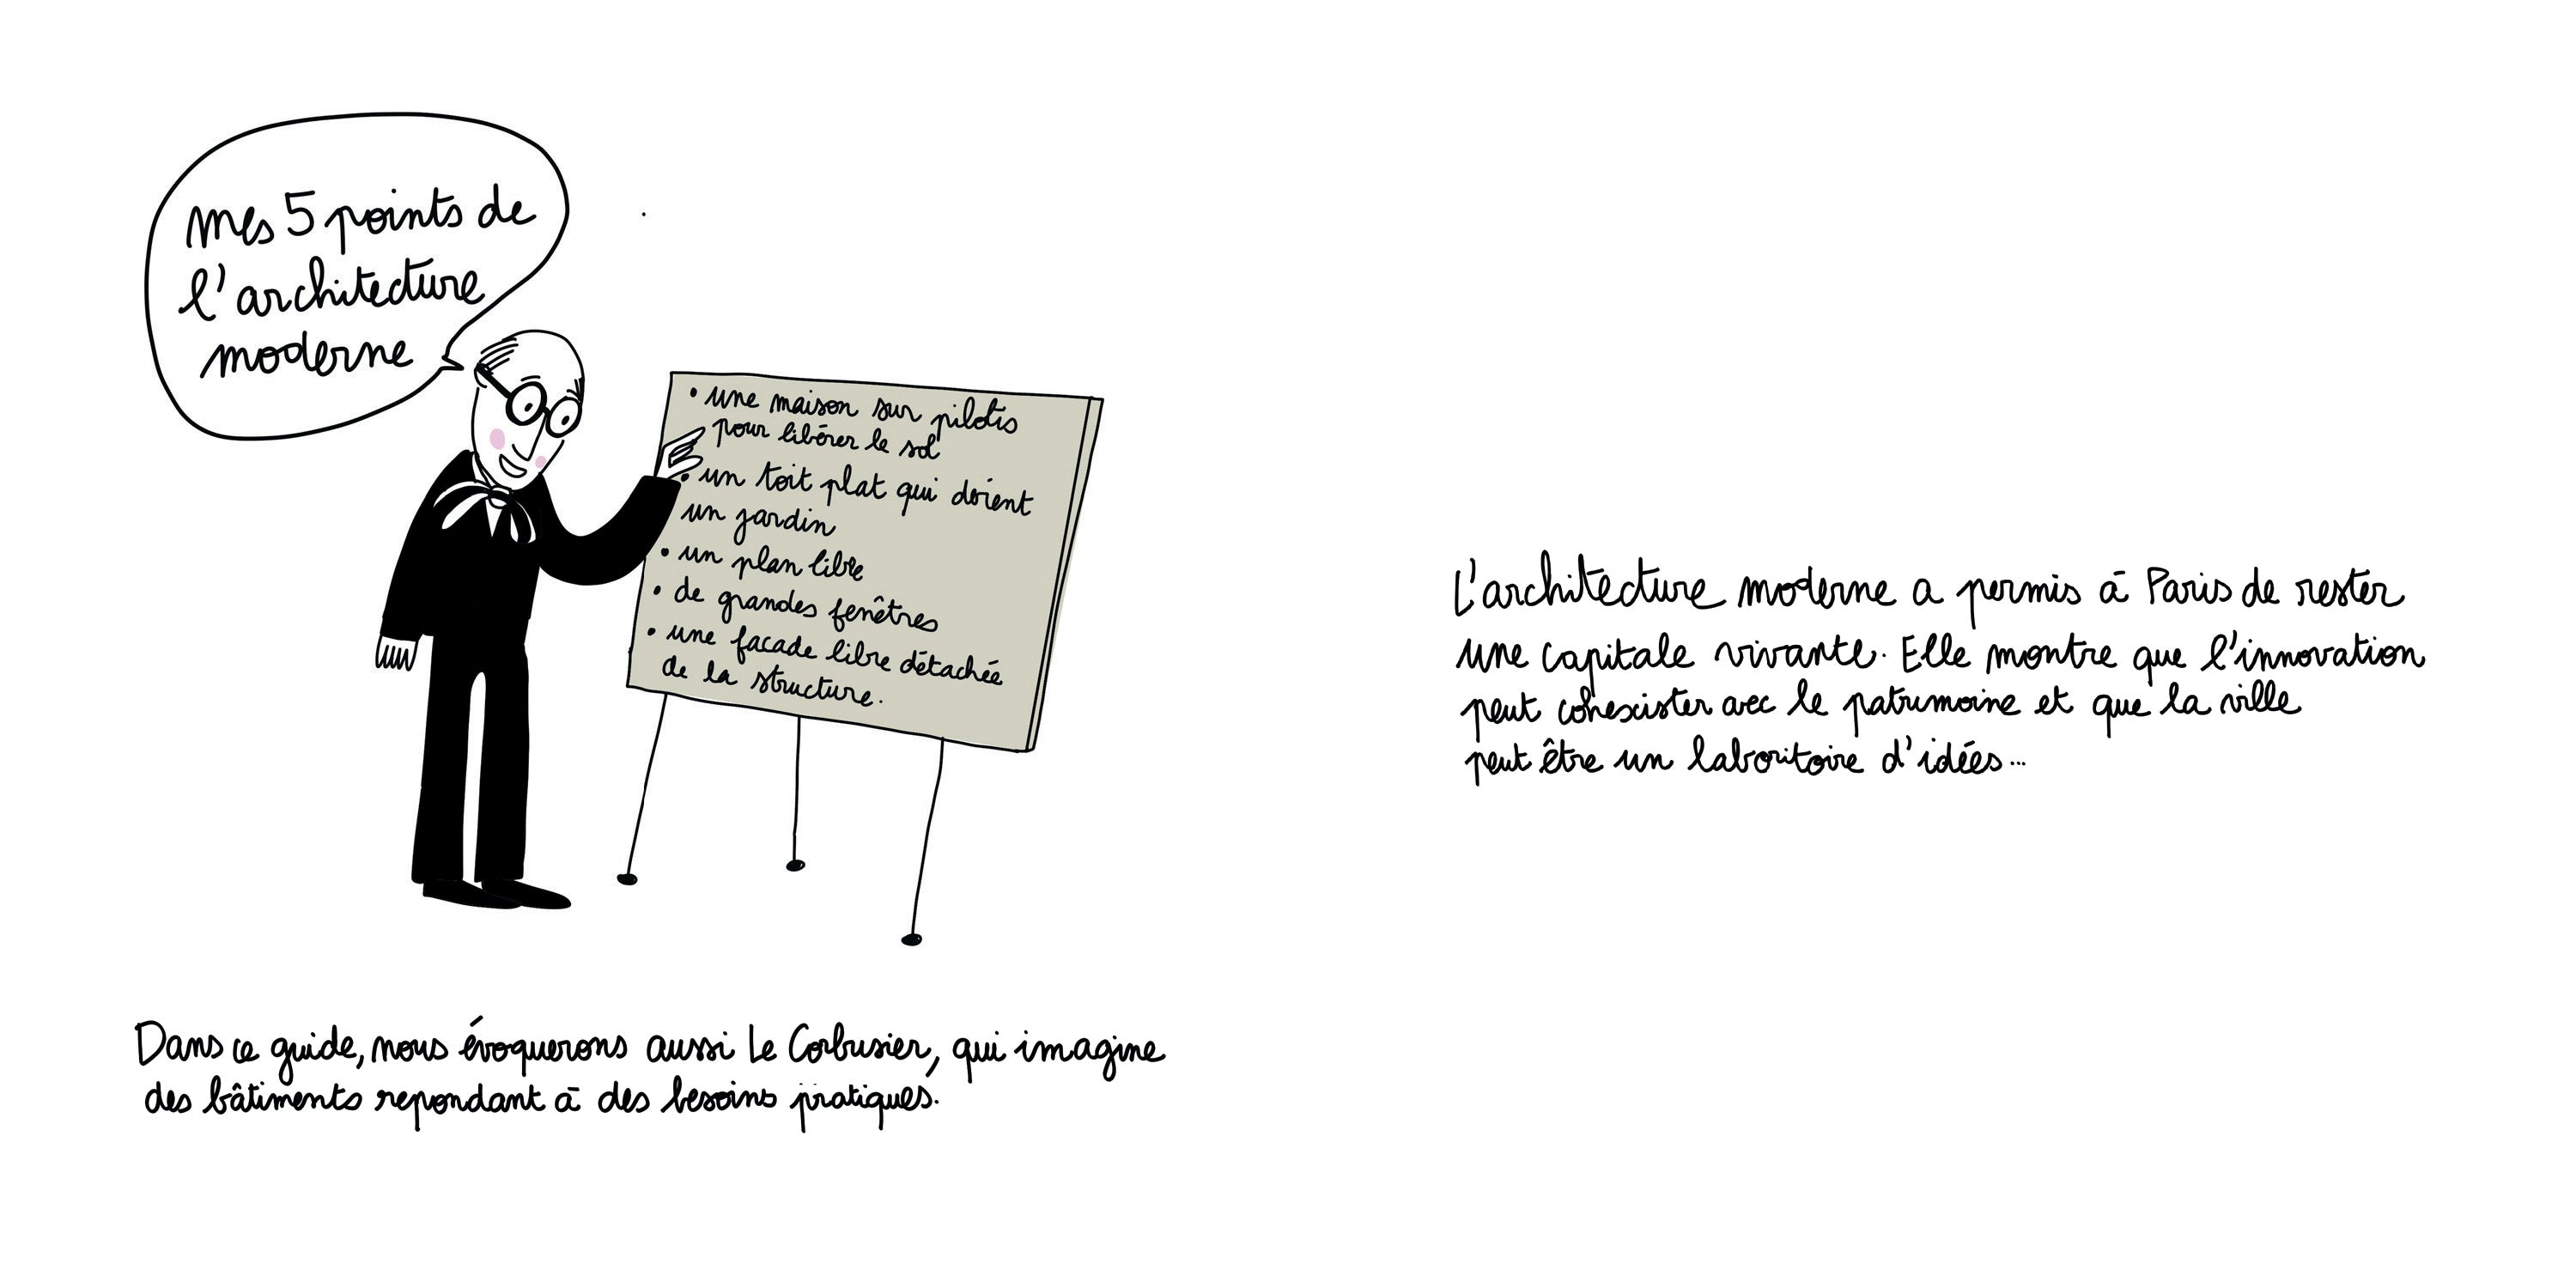 mes 5 points de
l'architecture
moderne
• une maison sur pilotis
pour libérer le sol
• un toit plat qui devient
un jardin
• un plan libre
• de grandes fenêtres
• une facade libre détachée
de la structure.
Dans ce guide, nous évoquerons aussi Le Corbusier, qui imagine
des bâtiments repondant à des besoins pratiques.
L'architecture moderne a permis à Paris de rester
une capitale vivante. Elle montre que l'innovation
peut cohexister avec le patrimoine et que la ville
peut être un laboritoire d'idées...